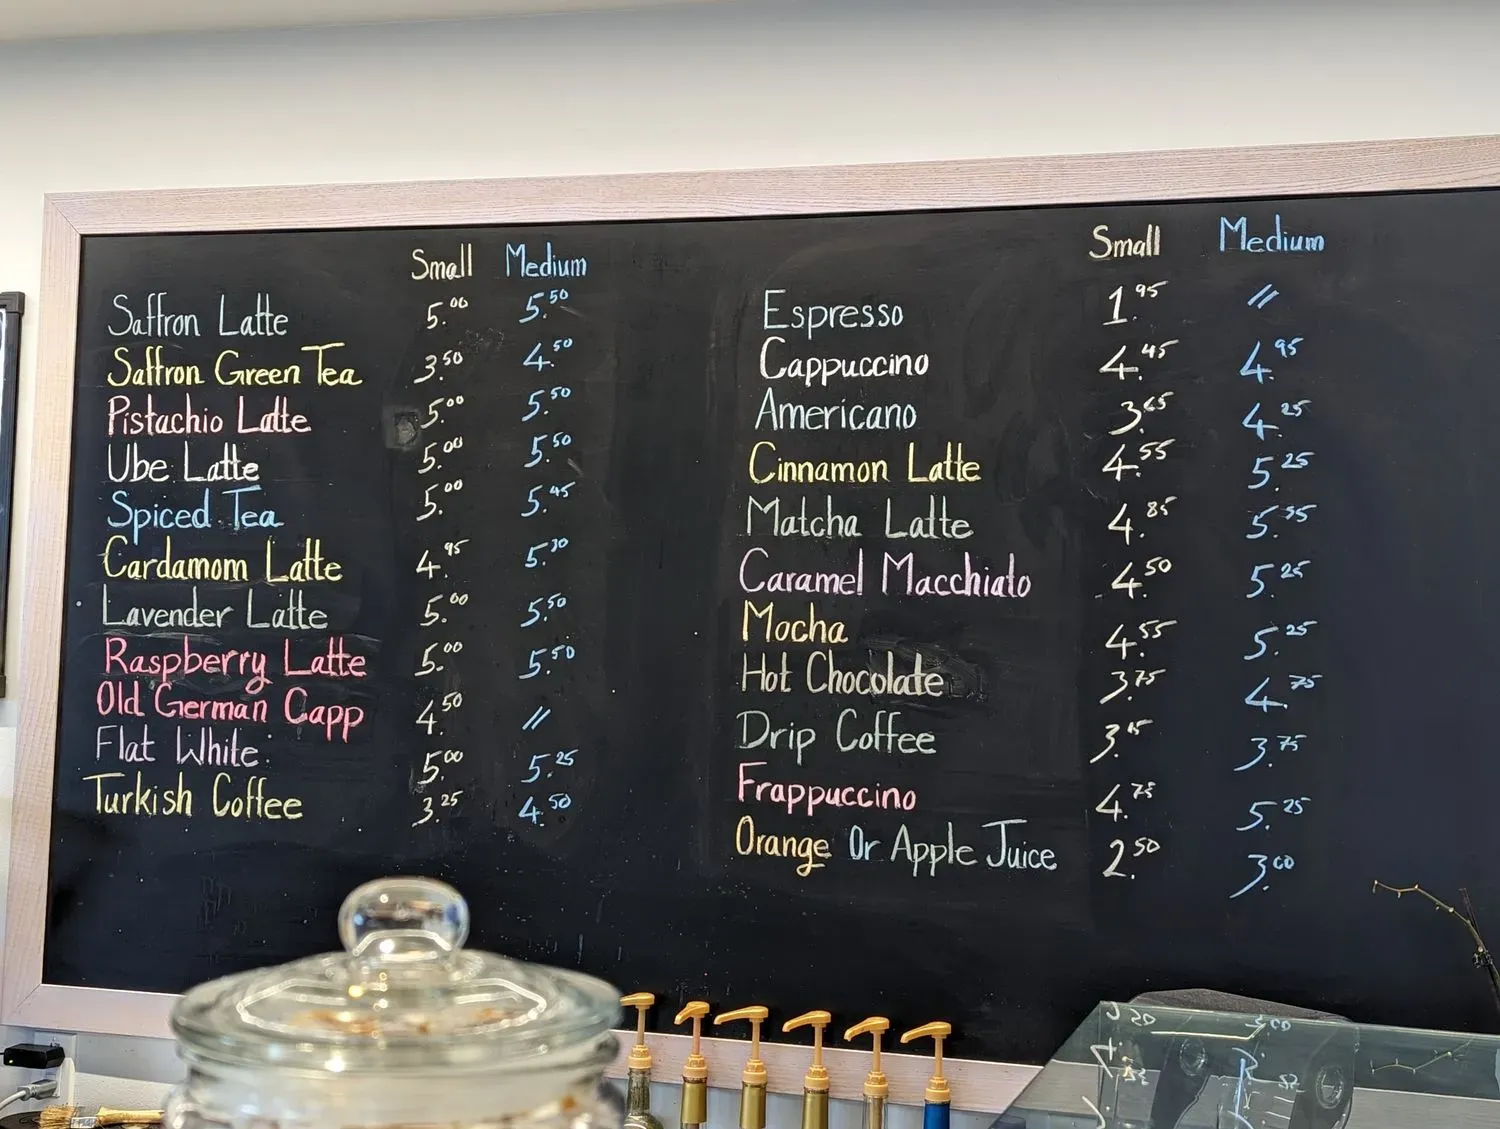 Small Medium
Saffron Latte 5.00 5.50
Saffron Green Tea 3.50 4.50
Pistachio Latte 5.00 5.50
Ube Latte 5.00 5.50
Spiced Tea 5.00 5.45
Cardamom Latte 4.95 5.30
Lavender Latte 5.00 5.50
Raspberry Latte 5.00 5.50
Old German Capp 4.50 //
Flat White 5.00 5.25
Turkish Coffee 3.25 4.50
Small Medium
Espresso 1.95 //
Cappuccino 4.45 4.95
Americano 3.65 4.25
Cinnamon Latte 4.55 5.25
Matcha Latte 4.85 5.35
Caramel Macchiato 4.50 5.25
Mocha 4.55 5.25
Hot Chocolate 3.75 4.75
Drip Coffee 3.75
Frappuccino 4.75 5.25
Orange Or Apple Juice 2.50 3.00